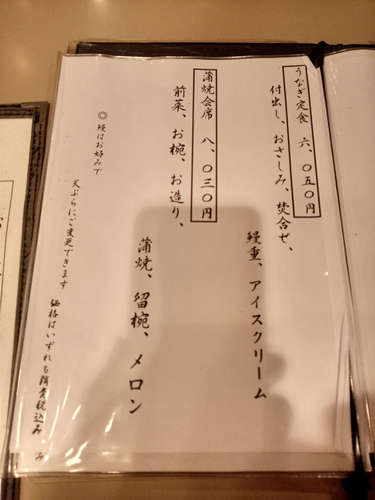 うなぎ定食 六、〇五〇円
付出し、おさしみ、焚合せ、
鰻重、アイスクリーム
蒲焼会席 八、〇三〇円
前菜、お椀、お造り、
蒲焼、留椀、メロン
◎ 鰻はお好みで
天ぷらにご変更できます
価格はいずれも消費税込み
み